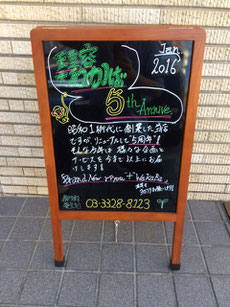 理容
わかば
Jan
2016
5th Anniv.
昭和1桁代に創業した当店
ですが、リニューアルして5周年!!
そんな今年は 様々な企画と
サービスを今まで以上にお届
けします!
Brand New myou + Wakaba.
03-3328-8223